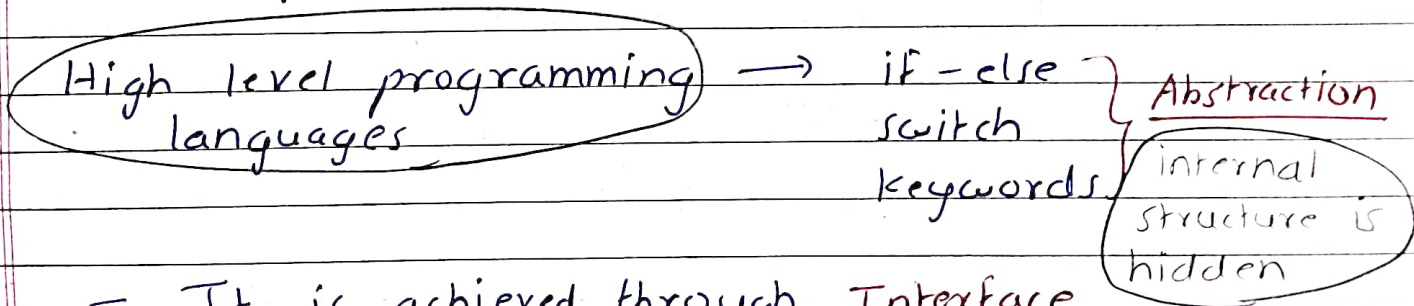 High level programming → if - else
languages
switch
keywords
Abstraction
internal
structure is
hidden
- It is achieved through Interface